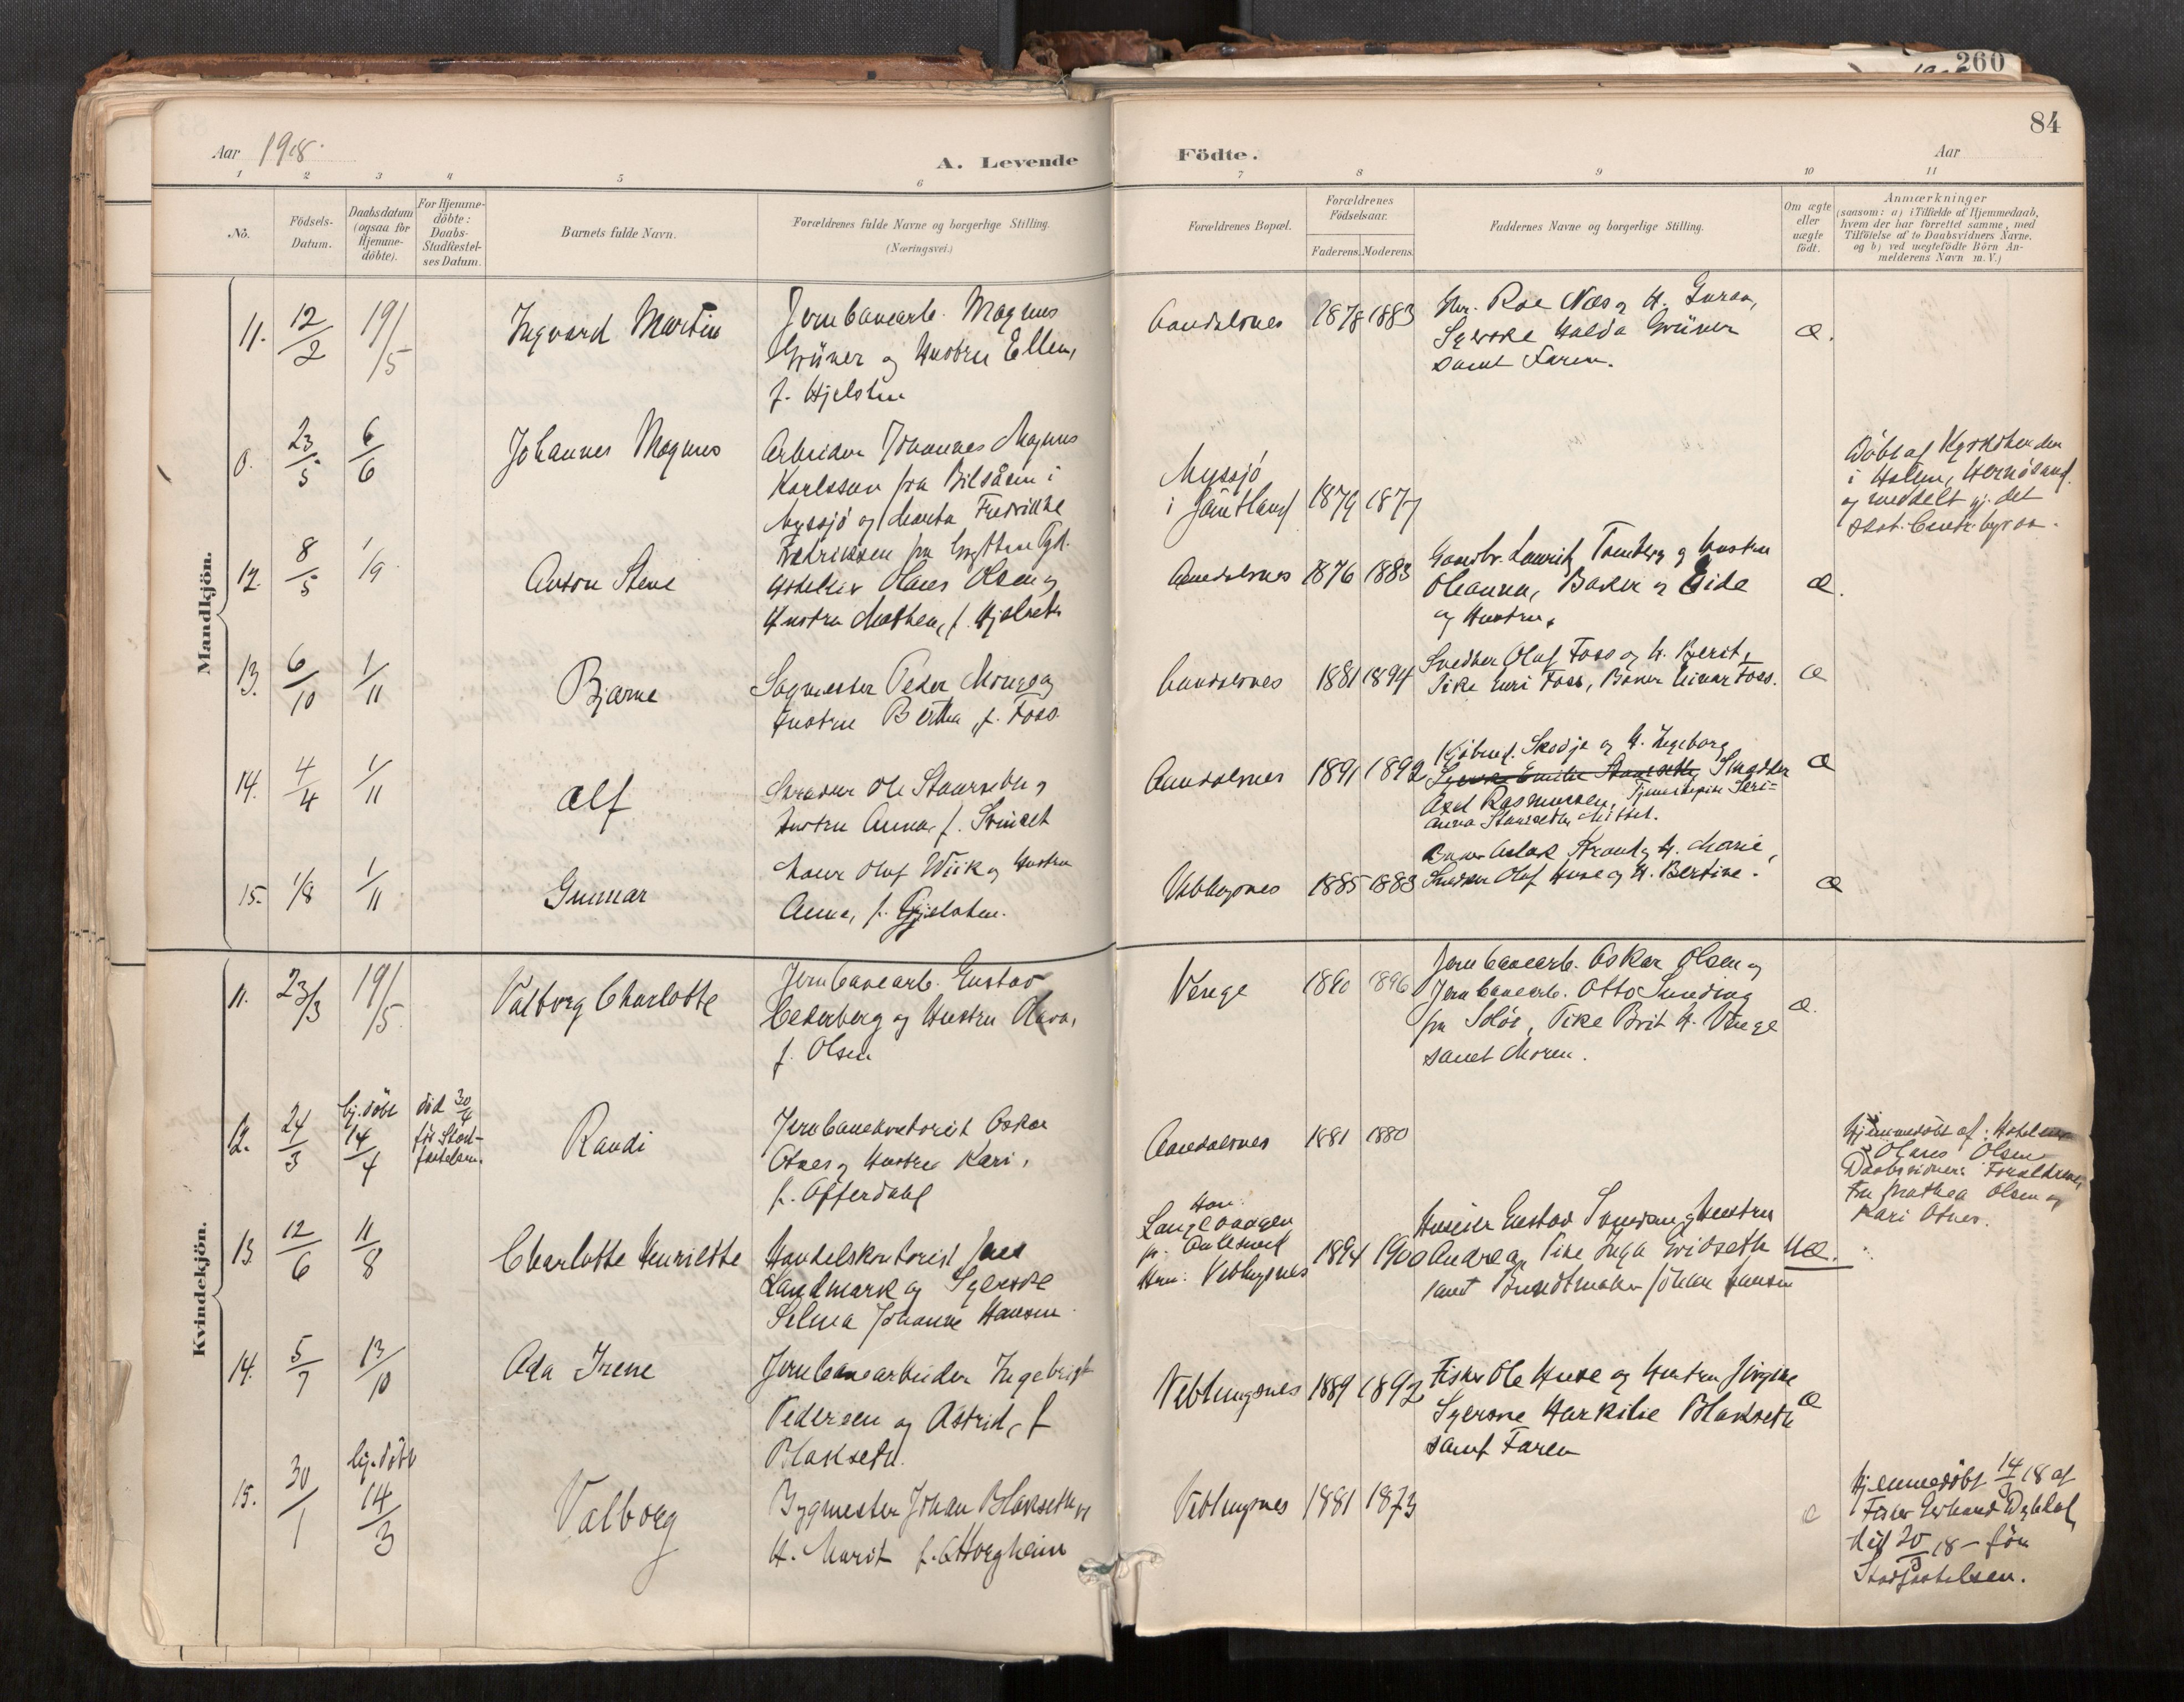 260
84
Aar 1918.
A. Levende
Födte.
Aar
1 2 3 4 5 6
7 8 9 10 11
No.
Födsels-
Datum.
Daabsdatum
(ogsaa for
Hjemme-
döbte).
For Hjemme-
döbte:
Daabs-
Stadfestel-
ses Datum.
Barnets fulde Navn.
Forældrenes fulde Navne og borgerlige Stilling.
(Næringsvei.)
Forældrenes Bopæl.
Forældrenes
Födselsaar.
Faderens. Moderens.
Faddernes Navne og borgerlige Stilling.
Om ægte
eller
uægte
födt.
Anmærkninger
(saasom: a) i Tilfælde af Hjemmedaab,
hvem der har forrettet samme, med
Tilföielse af to Daabsvidners Navne,
og b) ved uægtefödte Börn An-
melderens Navn m.V.)
Mandkjön.
11. 12/2 19/5 Ingvard Martin
Jernbanearb. Magnus
Grüner og Hustru Ellen,
f. Hjelsten
Aandalsnes 1878 1883
Roe Næs og H. Guroa,
Syerske Halda Grüner
samt Faren.
æ.
0. 23/5 6/6 Johannes Magnus
Arbeider Johannes Magnus
Karlsson fra Bilsåen i
Myssjö og Marta Fredrikke
Fredriksen fra
Myssjö
i Jämtland 1879 1877
Döbt af Kyrkoherden
i Holen, Hernösand
og meddelt gj. det
stat. Centr. byraa.
12. 8/5 1/9. Anton Stene
Hotelier Olaus Olsen og
Hustru Mathea, f. Hjelseth
Aandalsnes 1876 1883
Gaardbr. Laurits Tomberg og Hustru
Oleanna, Baker Eide
og Hustru.
æ.
13. 6/10 1/11 Bjarne
Sagmester Peder Monge og
Hustru Bertha, f. Foss.
Aandalsnes 1881 1894
Snedker Olaf Foss og H. Berit,
Pike Guri Foss, Baker Einar Foss.
æ
14. 4/4 1/11 Alf
Skrædder Ole Staurseth og
Hustru Anna, f. Sviniset
Aandalsnes 1891 1892
Kjöbmd. Skodje og H. Ingeborg
Syerske Emilie Staurseth, Snedker
Axel Rasmussen, Tjenestepike Seri-
anna Staurseth Mittet.
æ
15. 1/8 1/11 Gunnar
Maler Olaf Wiik og Hustru
Anna, f. Gjelsten.
Veblugsnes 1885 1883
Baker Aslak Strand og H. Marie,
Snedker Olaf Huse og H. Bertine.
æ
Kvindekjön.
11. 23/3 19/5 Valborg Charlotte
Jernbanearb. Gustav
Cederberg og Hustru Olava,
f. Olsen
Venge 1890 1896
Jernbanearb. Oskar Olsen og
Jernbanearb. Otto Sunding
fra Solör, Pike Brit H. Venge
samt Moren.
æ.
12. 24/3 hj.döbt 14/4 död 30/4
för Stad-
festelsen. Randi
Jernbanekontorist Oskar
Otnes og Hustru Kari,
f. Offerdahl
Aandalsnes 1881 1880
Hjemmedöbt af: Hotelier
Olaus Olsen
Daabsvidner: Forældrene,
Fru Mathea Olsen og
Kari Otnes.
13. 12/6 11/8 Charlotte Henriette
Handelskontorist Jens
Landmark og Syerske
Selma Johanne Hansen
Han:
Langevaagen
pr. Aalesund
Hun: Veblugsnes 1894 1900
Gustav og Hustru
Andrea, Pike Inga Gridseth
samt Buntmaker Johan Hansen
Uæ.
14. 5/7 13/10 Ada Irene
Jernbanearbeider Ingebrigt
Pedersen og Astrid, f
Blakseth.
Veblungsnes 1889 1892
Fisker Ole Huse og Hustru Jörgine
Syerske Blakseth
samt Faren
æ
15. 30/1 hj.döbt 14/3 Valborg
Bygmester Johan Blakseth og
H. Marit f. Horgheim
Veblugsnes 1881 1873
æ
Hjemmedöbt 14/3 18 af
Fisker Erhard Dybdal,
död 20/3 18 – för
Stadfestelsen.